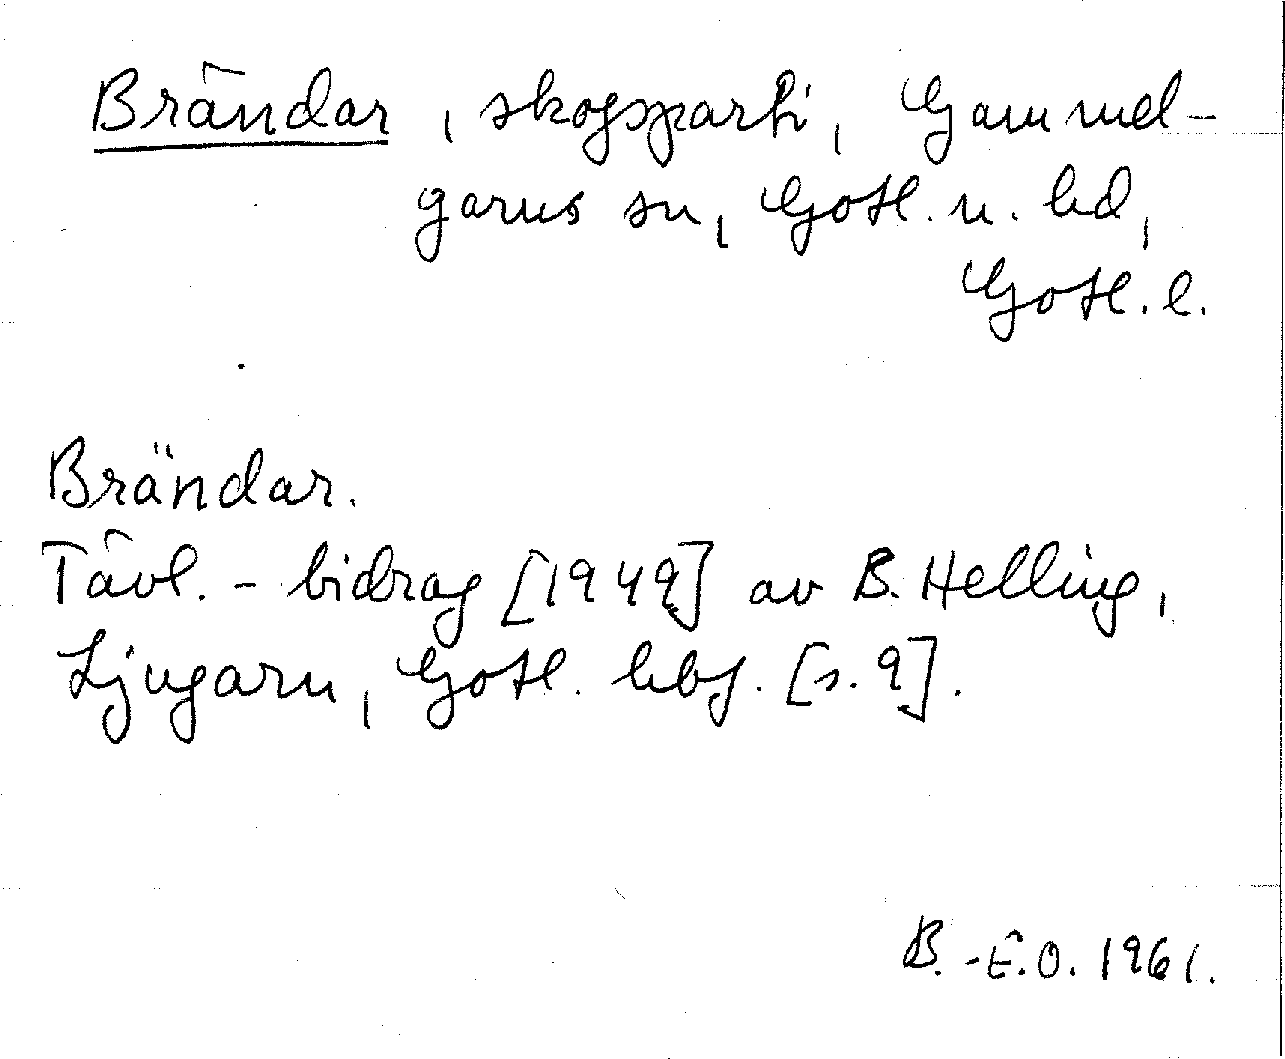 Brändar, skogsparti, Gammel-
garns sn, Gotl. n. hd,
Gotl. l.
Brändar.
Tävl.-bidrag [1949] av B. Helling,
Ljugarn, Gotl. hbf. [s. 9].
B.-E.O. 1961.